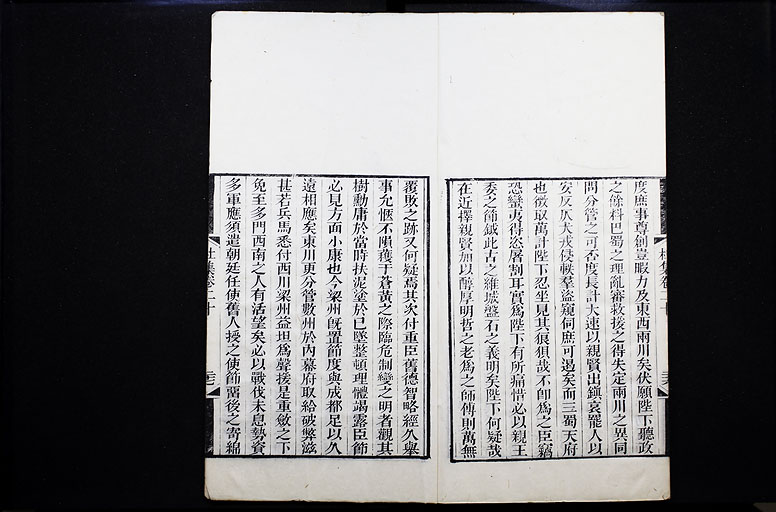 度庶事尊創豈暇力及東西兩川矣伏願陛下聽政
之餘料巴蜀之理亂審救援之得失定兩川之異同
問分管之可否度長計大速以親賢出鎮哀罷人以
安反仄犬戎侵軼羣盜窺伺庶可遏矣而三蜀天府
也徵取萬計陛下忍坐見其狼狽哉不卽爲之臣竊
恐蠻夷得恣屠割耳實爲陛下有所痛惜必以親王
委之節鉞此古之維城盤石之義明矣陛下何疑哉
在近擇親賢加以醇厚明哲之老爲之師傅則萬無
覆敗之跡又何疑焉其次付重臣舊德智略經久舉
事允愜不隕穫于蒼黃之際臨危制變之明者觀其
樹勳庸於當時扶泥塗於已墜整頓理體竭露臣節
必見方面小康也今梁州旣置節度與成都足以久
遠相應矣東川更分管數州於內幕府取給破弊滋
甚若兵馬悉付西川梁州益坦爲聲援是重斂之下
免至多門西南之人有活望矣必以戰伐未息勢資
多軍應須遣朝廷任使舊人授之使節留後之寄綿
杜集卷二十